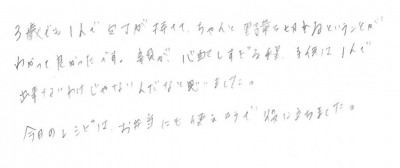 3歳でも1人で包丁が持てて、ちゃんと野菜も切れるということが
わかって良かったです。母親が、心配しすぎる程、子供は1人で
出来ないわけじゃないんだなと思いました。
今日のレシピは、お弁当にも使えるので役に立ちました。